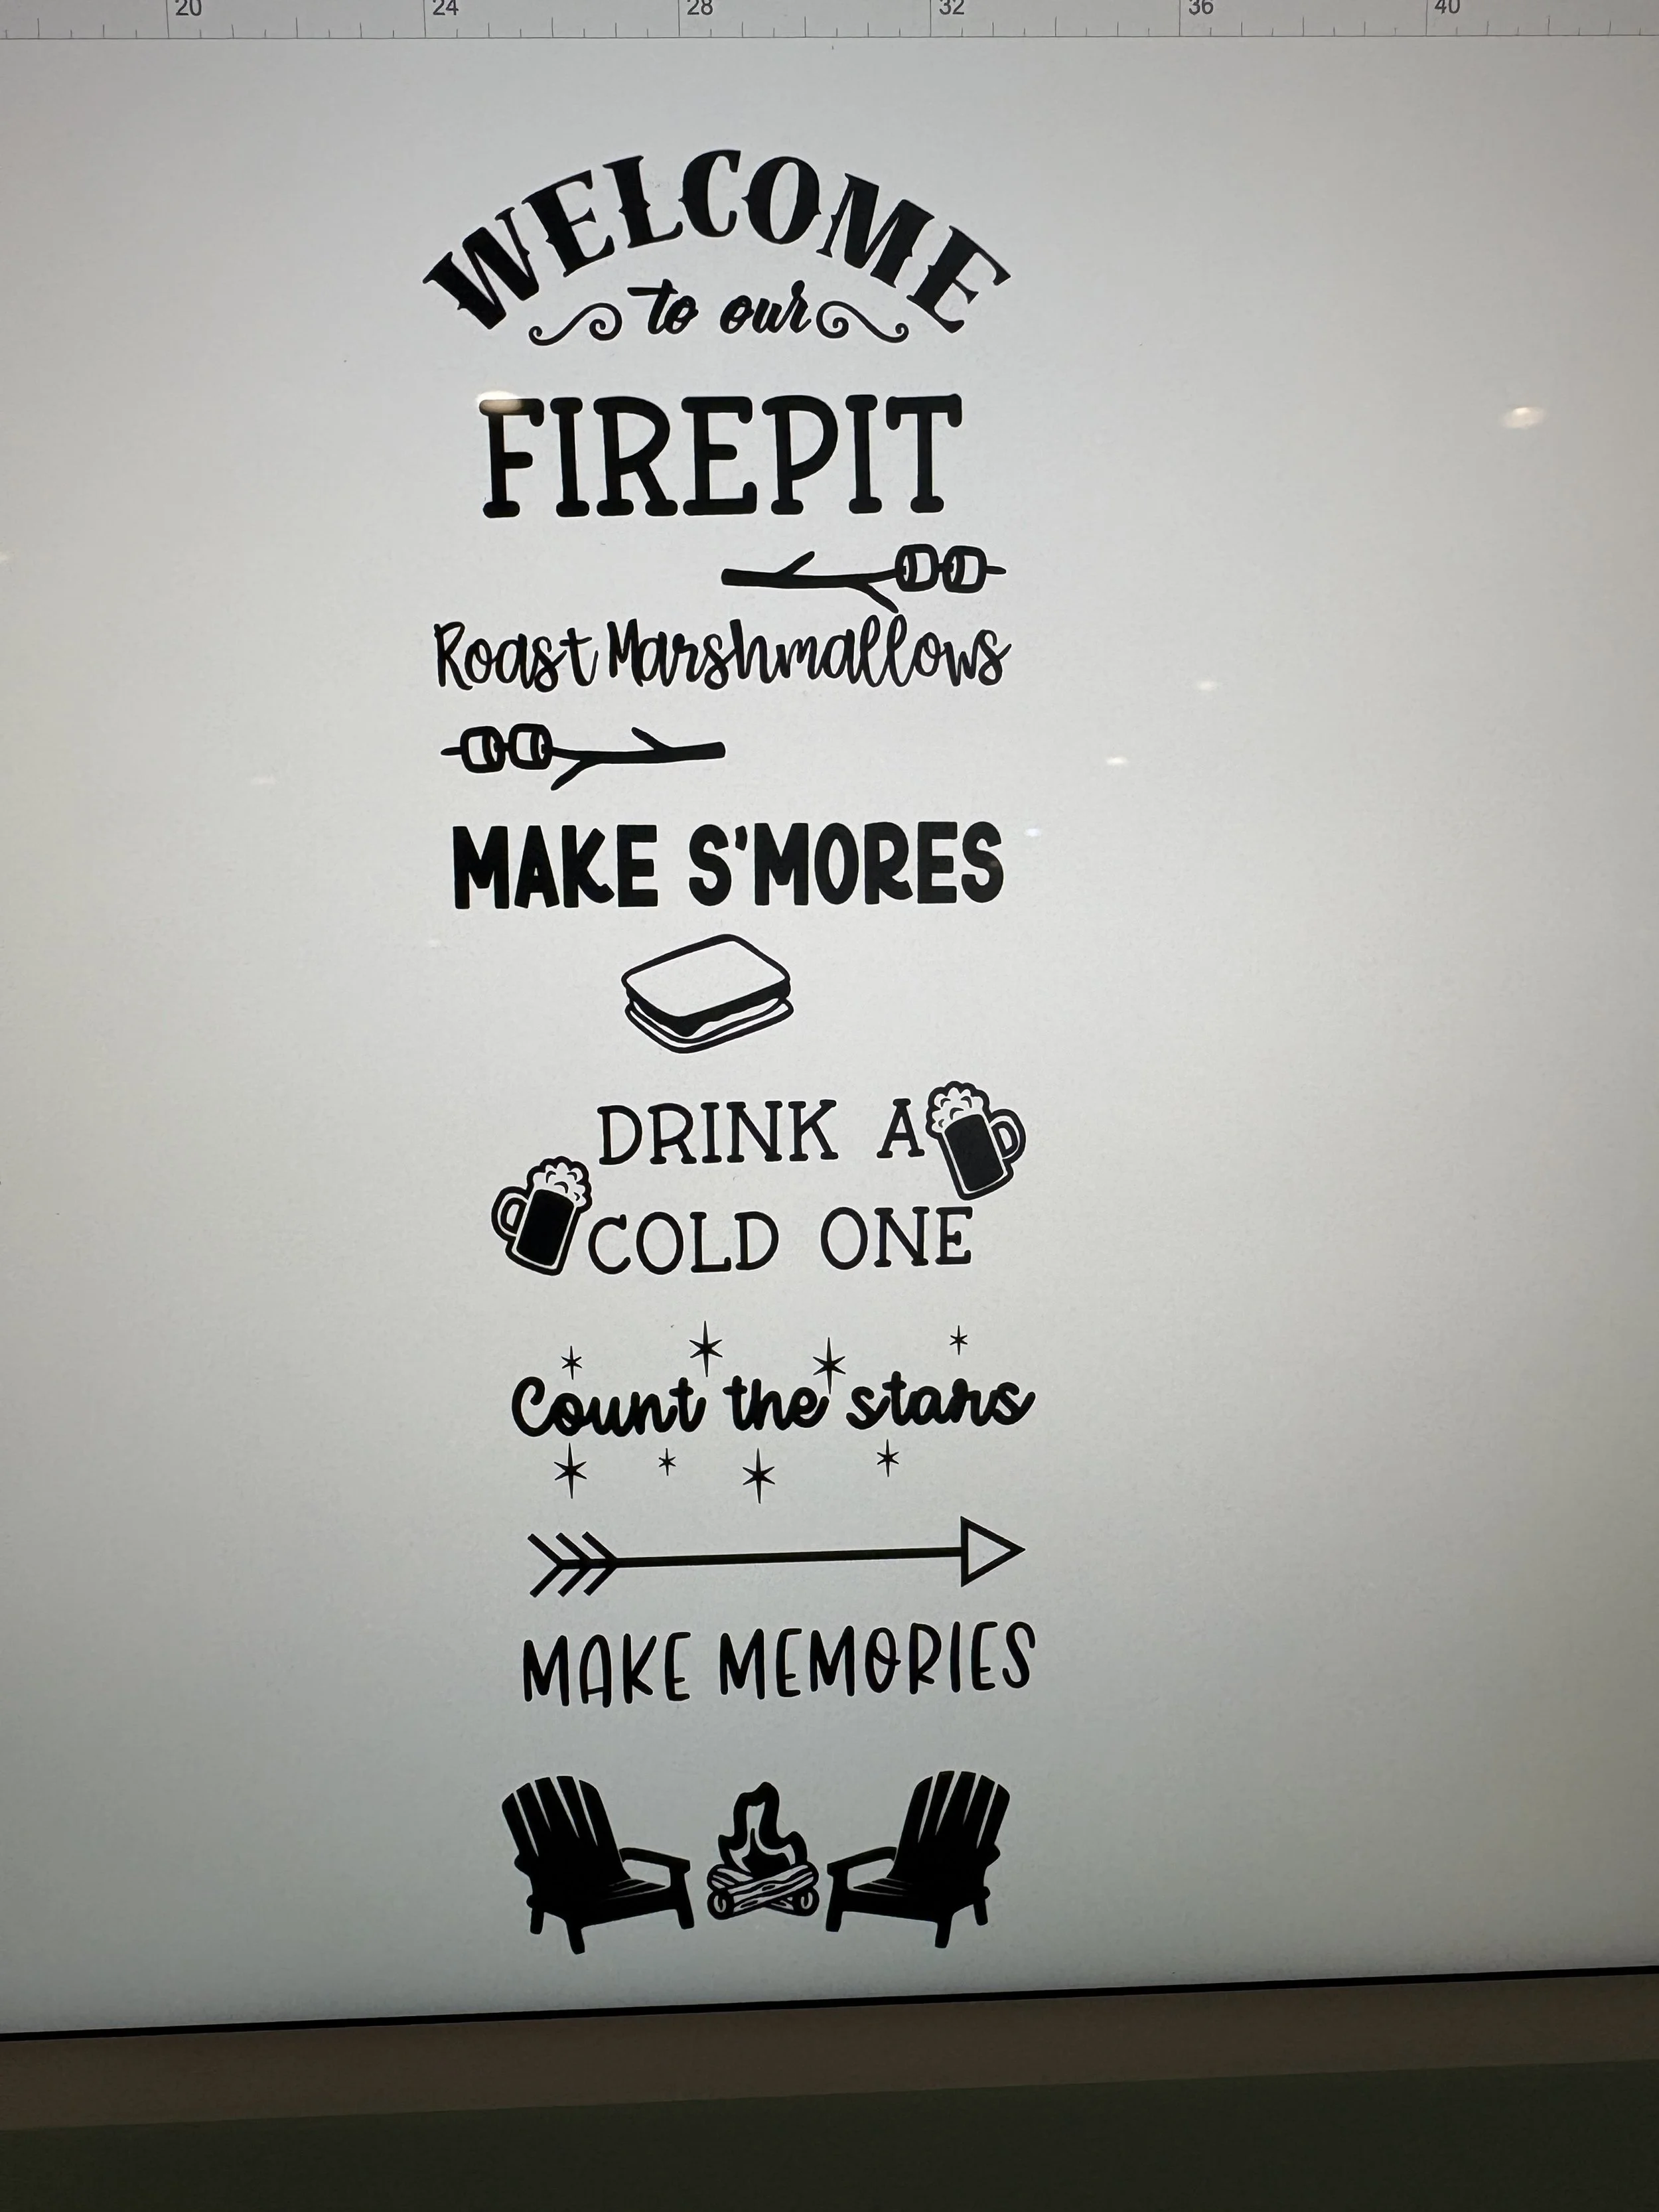 20 24 28 32 36 40
WELCOME
to our
FIREPIT
Roast Marshmallows
MAKE S'MORES
DRINK A
COLD ONE
Count the stars
MAKE MEMORIES